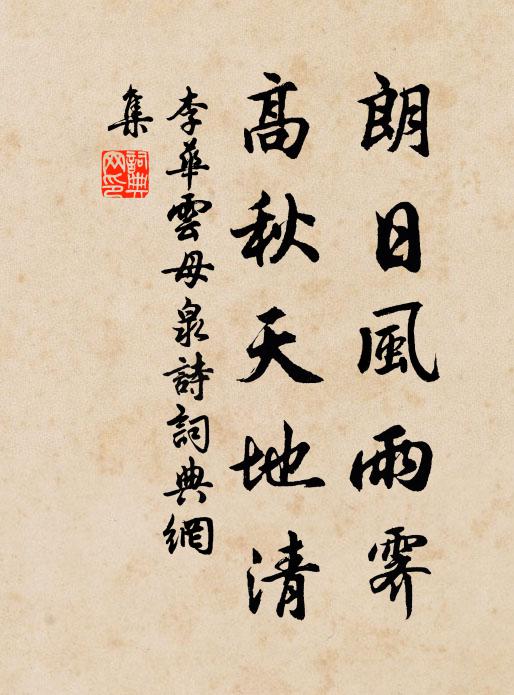 朗日風雨霽
高秋天地清
李華雲母泉詩詞典網
集
詞典
网印